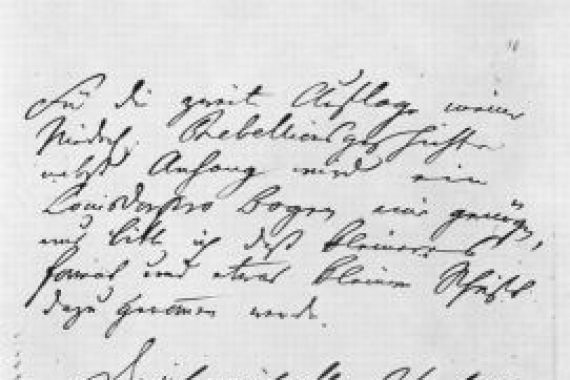 Für die zweite Auflage meiner
Niederl. Rebellionsgeschichte
nebst Anhang wird ein
Louisdor pro Bogen mir genügen,
nur bitte ich daß kleineres
Format und etwas kleinere Schrift
dazu genommen werde.